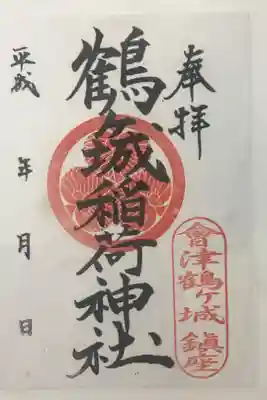 奉拝
鶴城稲荷神社
平成 年 月 日
會津鶴ヶ城 鎮座